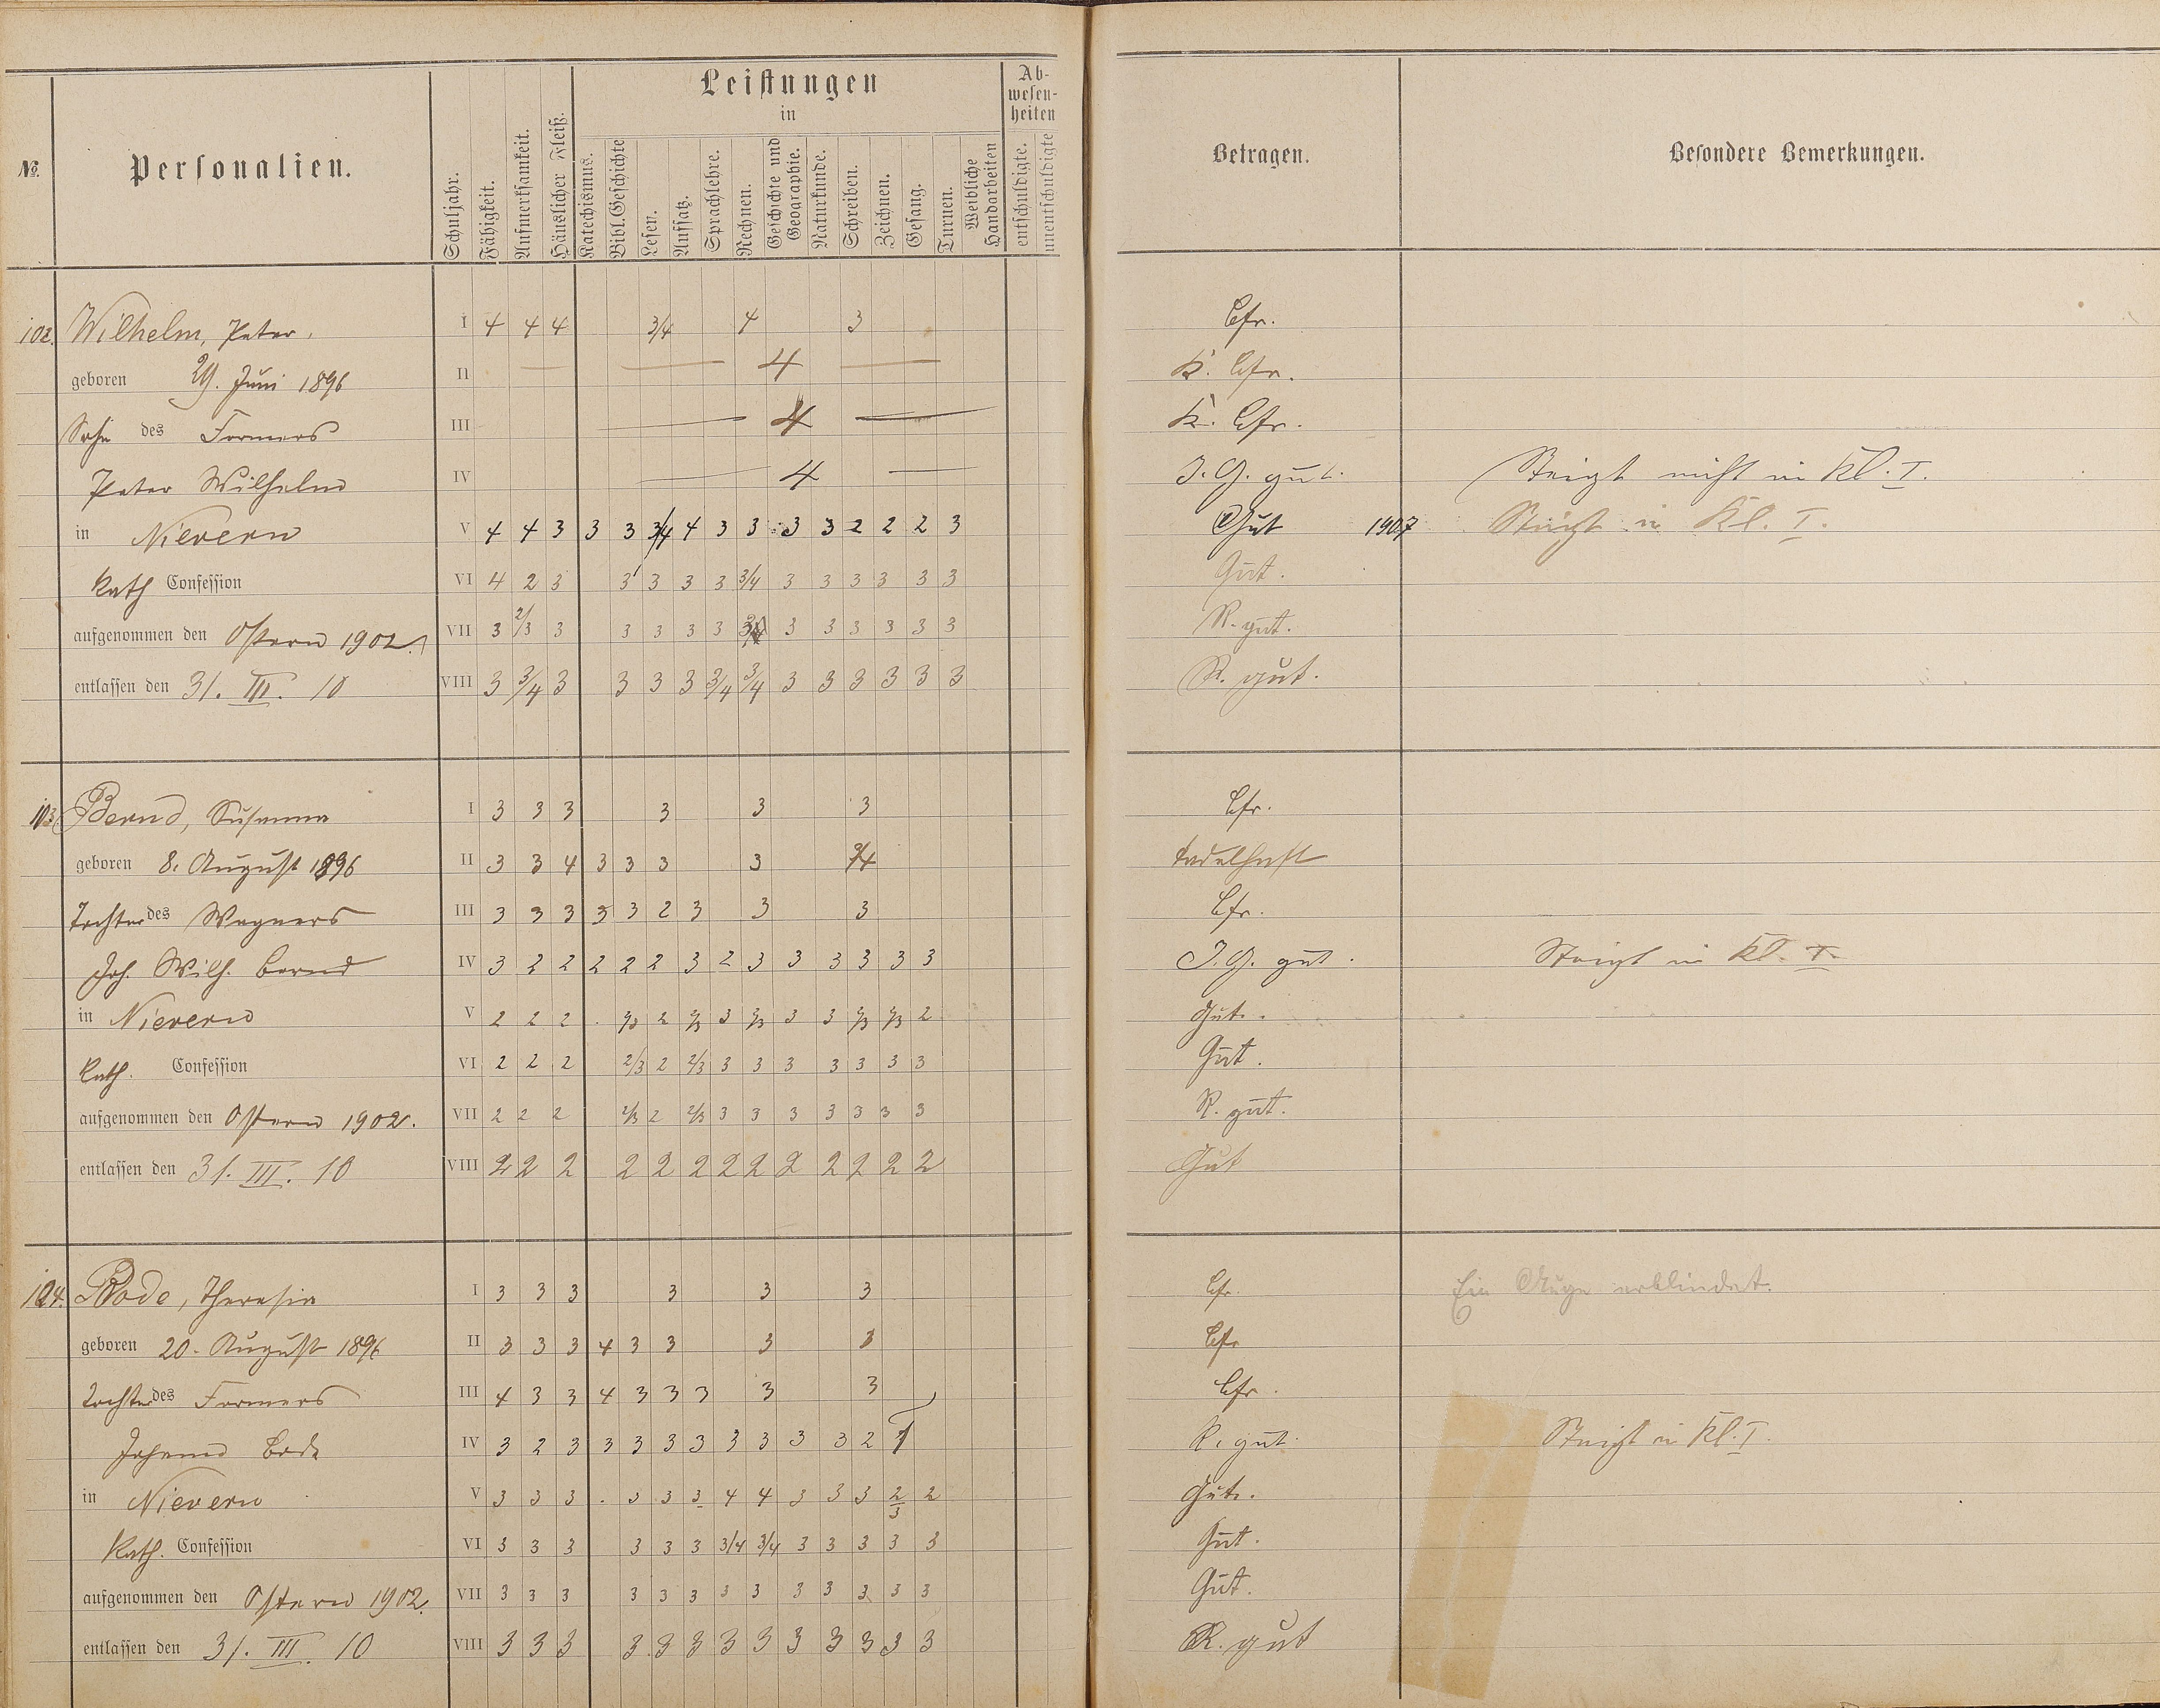 No. Personalien. Schuljahr. Fähigkeit. Aufmerksamkeit. Häuslicher Fleiß. Leistungen in Katechismus. Bibl. Geschichte Lesen. Aufsatz. Sprachlehre. Rechnen. Geschichte und Geographie. Naturkunde. Schreiben. Zeichnen. Gesang. Turnen. Weibliche Handarbeiten Abwesenheiten entschuldigte. unentschuldigte Betragen. Besondere Bemerkungen.
102. Wilhelm, Peter. I 4 4 4 3/4 4 3 Bfr.
geboren 29. Juni 1896 II — — 4 — K. Bfr.
Sohn des Formers III — 4 — K. Bfr.
Peter Wilhelm IV — 4 — I. G. gut. Steigt nicht in Kl. I.
in Nievern V 4 4 3 3 3 3/4 4 3 3 3 3 2 2 2 3 Gut 1907 Steigt in Kl. I.
Kath Confession VI 4 2 3 3 3 3 3 3/4 3 3 3 3 3 3 Gut.
aufgenommen den Ostern 1902. VII 3 2/3 3 3 3 3 3 3/4 3 3 3 3 3 3 R. gut.
entlassen den 31. III. 10 VIII 3 3/4 3 3 3 3 3/4 3/4 3 3 3 3 3 3 R. gut.
103. Bernd, Susanna I 3 3 3 3 3 3 Bfr.
geboren 8. August 1896 II 3 3 4 3 3 3 3 3/4 tadelhaft
Tochter des Wagners III 3 3 3 3 3 2 3 3 3 Bfr.
Joh. Wilh. Bernd IV 3 2 2 2 2 2 3 2 3 3 3 3 3 3 I. G. gut. Steigt in Kl. I.
in Nievern V 2 2 2 . 2/3 2 2/3 3 2/3 3 3 2/3 2/3 2 Gut.
Kath. Confession VI 2 2 2 2/3 2 2/3 3 3 3 3 3 3 3 Gut.
aufgenommen den Ostern 1902. VII 2 2 2 2/3 2 2/3 3 3 3 3 3 3 3 R. gut.
entlassen den 31. III. 10 VIII 2 2 2 2 2 2 2 2 2 2 2 2 2 Gut
104. Bode, Theresia I 3 3 3 3 3 3 Bfr. Ein Auge erblindet.
geboren 20. August 1896 II 3 3 3 4 3 3 3 3 Bfr
Tochter des Formers III 4 3 3 4 3 3 3 3 3 Bfr.
Johann Bode IV 3 2 3 3 3 3 3 3 3 3 3 2 R. gut. Steigt in Kl. I.
in Nievern V 3 3 3 . 3 3 3 4 4 3 3 3 2/3 2 Gut.
Kath. Confession VI 3 3 3 3 3 3 3/4 3/4 3 3 3 3 3 Gut.
aufgenommen den Ostern 1902. VII 3 3 3 3 3 3 3 3 3 3 3 3 3 Gut.
entlassen den 31. III. 10 VIII 3 3 3 3 3 3 3 3 3 3 3 3 3 R. gut